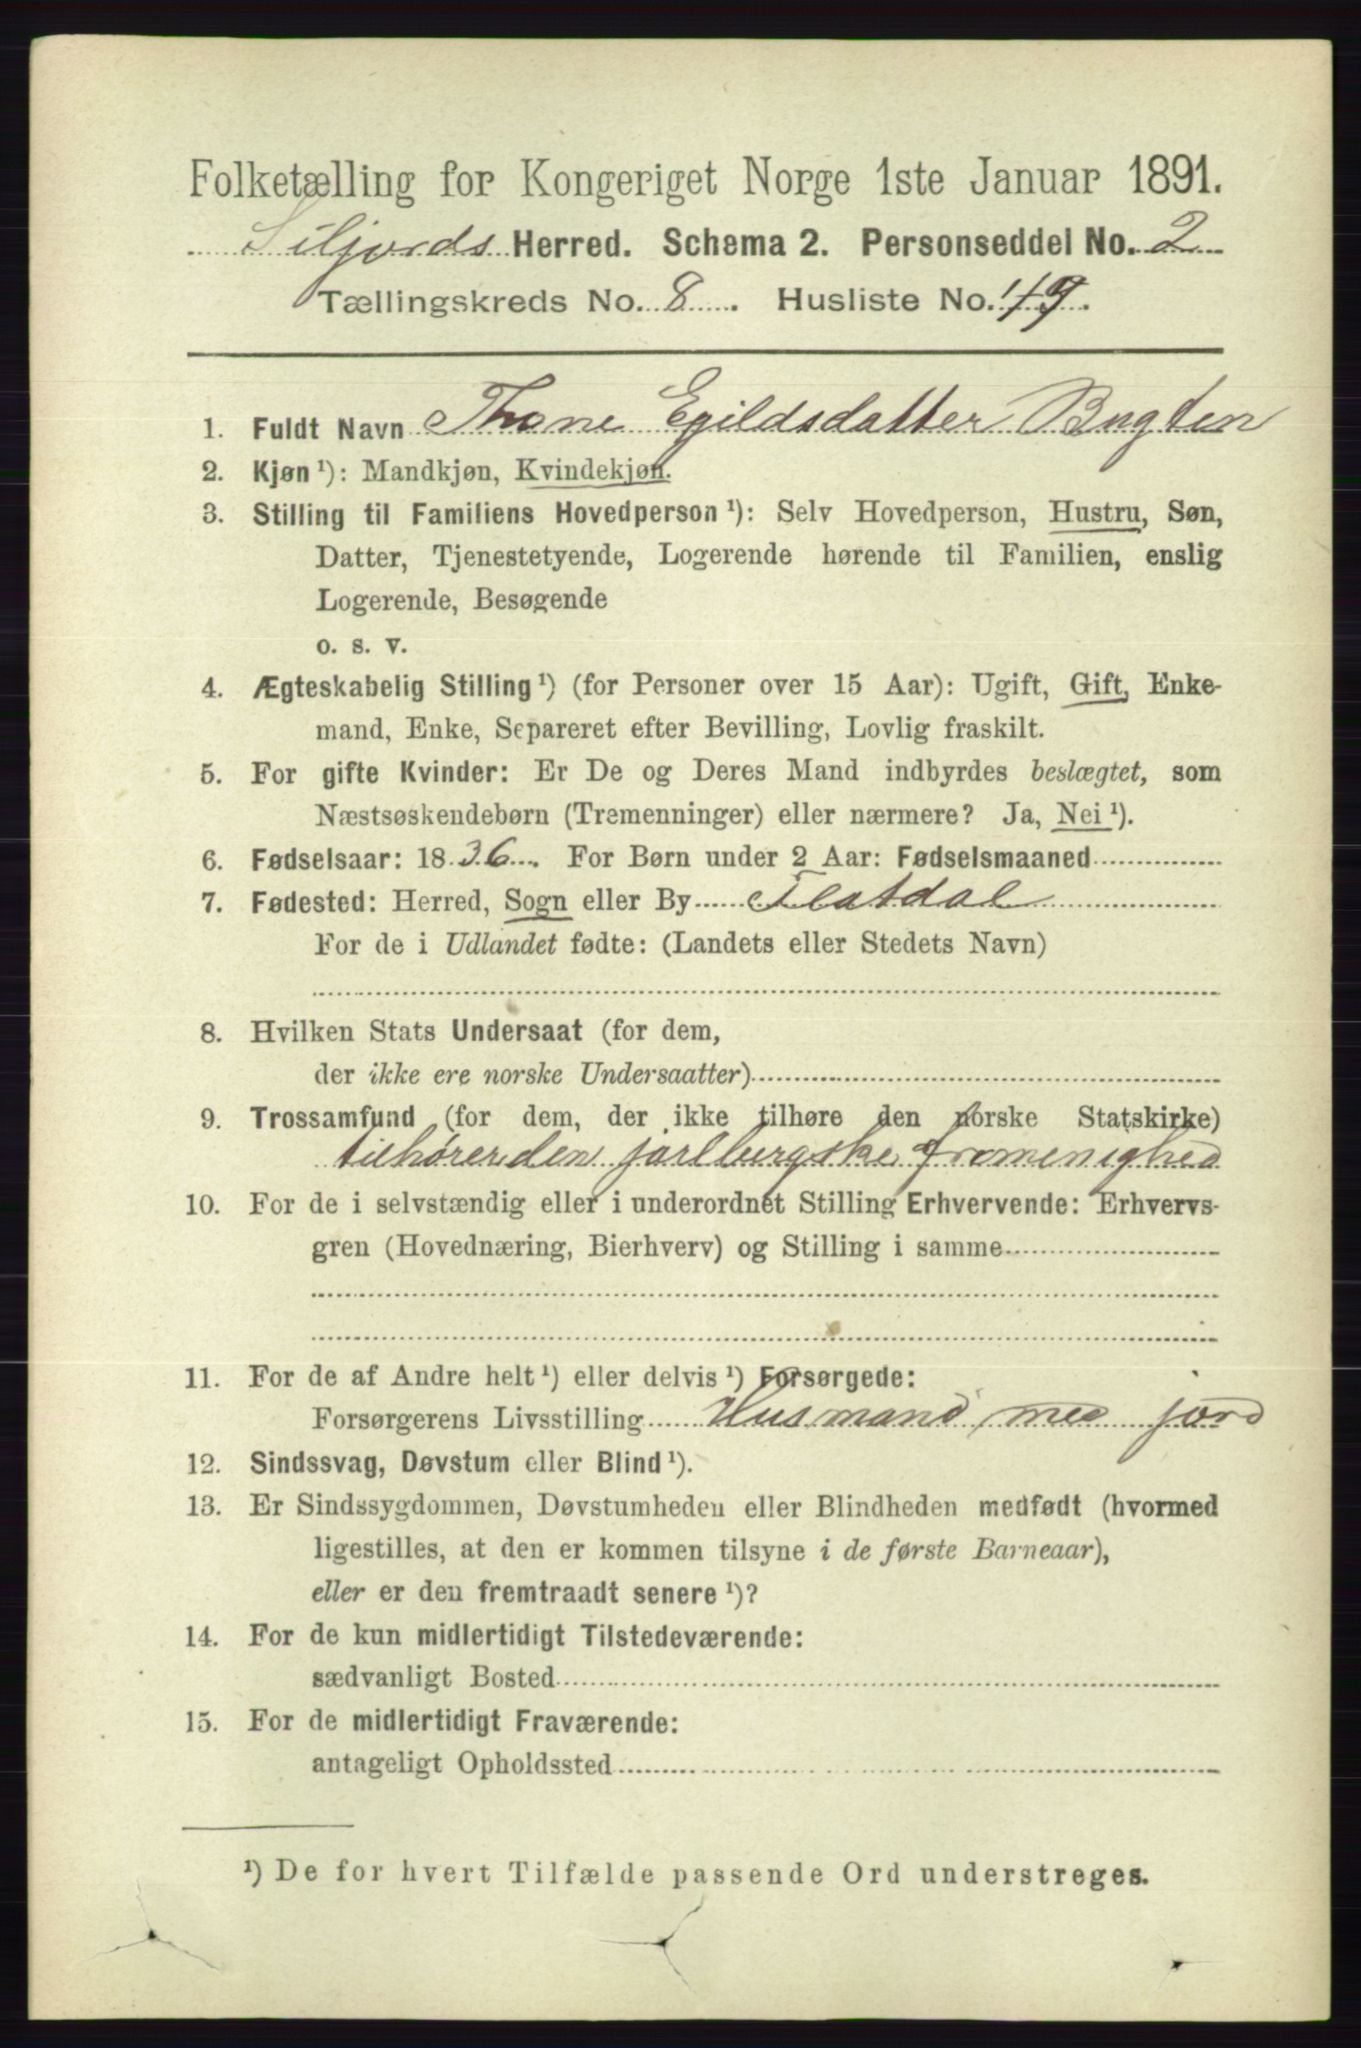 Folketælling for Kongeriget Norge 1ste Januar 1891.
Siljords Herred. Schema 2. Personseddel No. 2
Tællingskreds No. 8. Husliste No.
1. Fuldt Navn Thone Egildsdatter Bugten
2. Kjøn ¹): Mandkjøn, Kvindekjøn.
3. Stilling til Familiens Hovedperson ¹): Selv Hovedperson, Hustru, Søn,
Datter, Tjenestetyende, Logerende hørende til Familien, enslig
Logerende, Besøgende
o. s. v.
4. Ægteskabelig Stilling ¹) (for Personer over 15 Aar): Ugift, Gift, Enke-
mand, Enke, Separeret efter Bevilling, Lovlig fraskilt.
5. For gifte Kvinder: Er De og Deres Mand indbyrdes beslægtet, som
Næstsøskendebørn (Tremenninger) eller nærmere? Ja, Nei ¹).
6. Fødselsaar: 1836. For Børn under 2 Aar: Fødselsmaaned
7. Fødested: Herred, Sogn eller By Flatdal
For de i Udlandet fødte: (Landets eller Stedets Navn)
8. Hvilken Stats Undersaat (for dem,
der ikke ere norske Undersaatter)
9. Trossamfund (for dem, der ikke tilhøre den norske Statskirke)
tilhører den jarlbergske fromenighed
10. For de i selvstændig eller i underordnet Stilling Erhvervende: Erhvervs-
gren (Hovednæring, Bierhverv) og Stilling i samme
11. For de af Andre helt ¹) eller delvis ¹) Forsørgede:
Forsørgerens Livsstilling Husmand med jord
12. Sindssvag, Døvstum eller Blind ¹).
13. Er Sindssygdommen, Døvstumheden eller Blindheden medfødt (hvormed
ligestilles, at den er kommen tilsyne i de første Barneaar),
eller er den fremtraadt senere ¹)?
14. For de kun midlertidigt Tilstedeværende:
sædvanligt Bosted
15. For de midlertidigt Fraværende:
antageligt Opholdssted
¹) De for hvert Tilfælde passende Ord understreges.